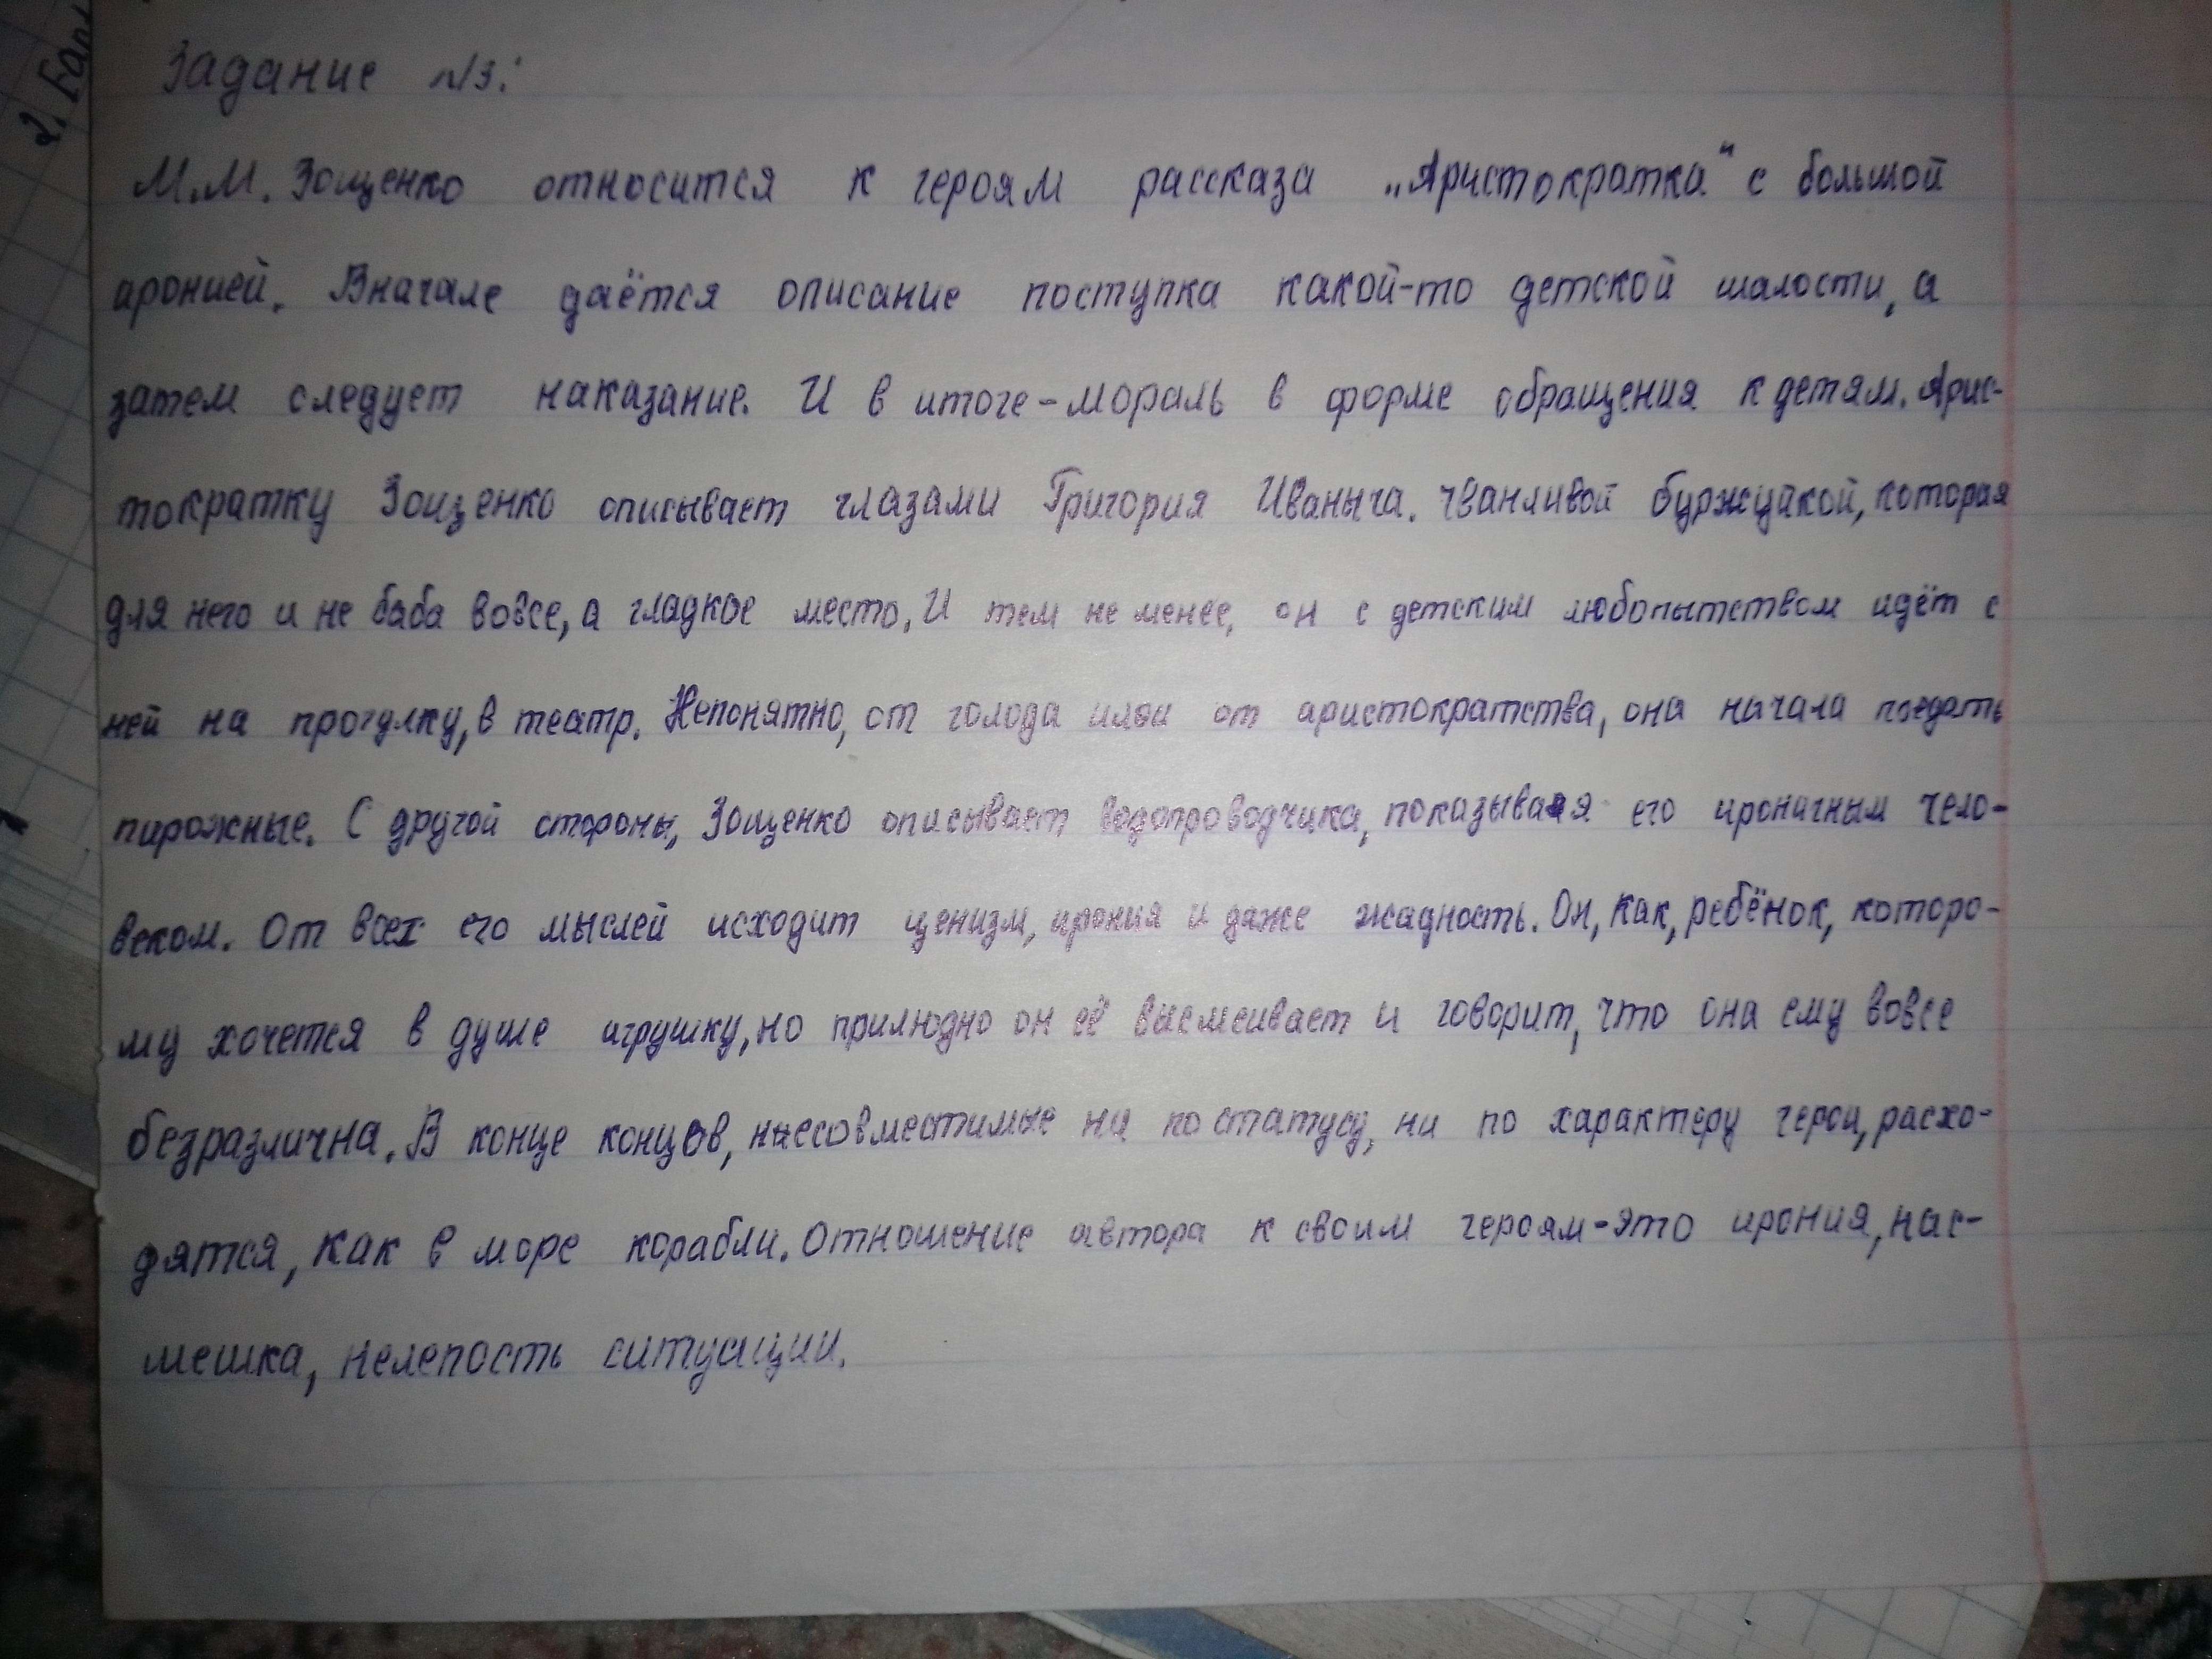 2. Бап
Задание №3:
М.М. Зощенко относится к героям рассказа „Аристократка" с большой
аронией. Вначале даётся описание поступка какой-то детской шалости, а
затем следует наказание. И в итоге-мораль в форме обращения к детям. Арис-
тократку Зощенко описывает глазами Григория Иваныча. Чванливой буржуйкой, которая
для него и не баба вовсе, а гладкое место. И тем не менее, он с детским любопытством идёт с
ней на прогулку, в театр. Непонятно, от голода или от аристократства, она начала поедать
пирожные. С другой стороны, Зощенко описывает водопроводчика, показывая его ироничным чело-
веком. От всех его мыслей исходит ценизм, ирония и даже жадность. Он, как, ребёнок, которо-
му хочется в душе игрушку, но прилюдно он её высмеивает и говорит, что она ему вовсе
безразлична. В конце концов, несовместимые ни по статусу, ни по характеру герои, расхо-
дятся, как в море корабли. Отношение автора к своим героям-это ирония, нас-
мешка, нелепость ситуации.